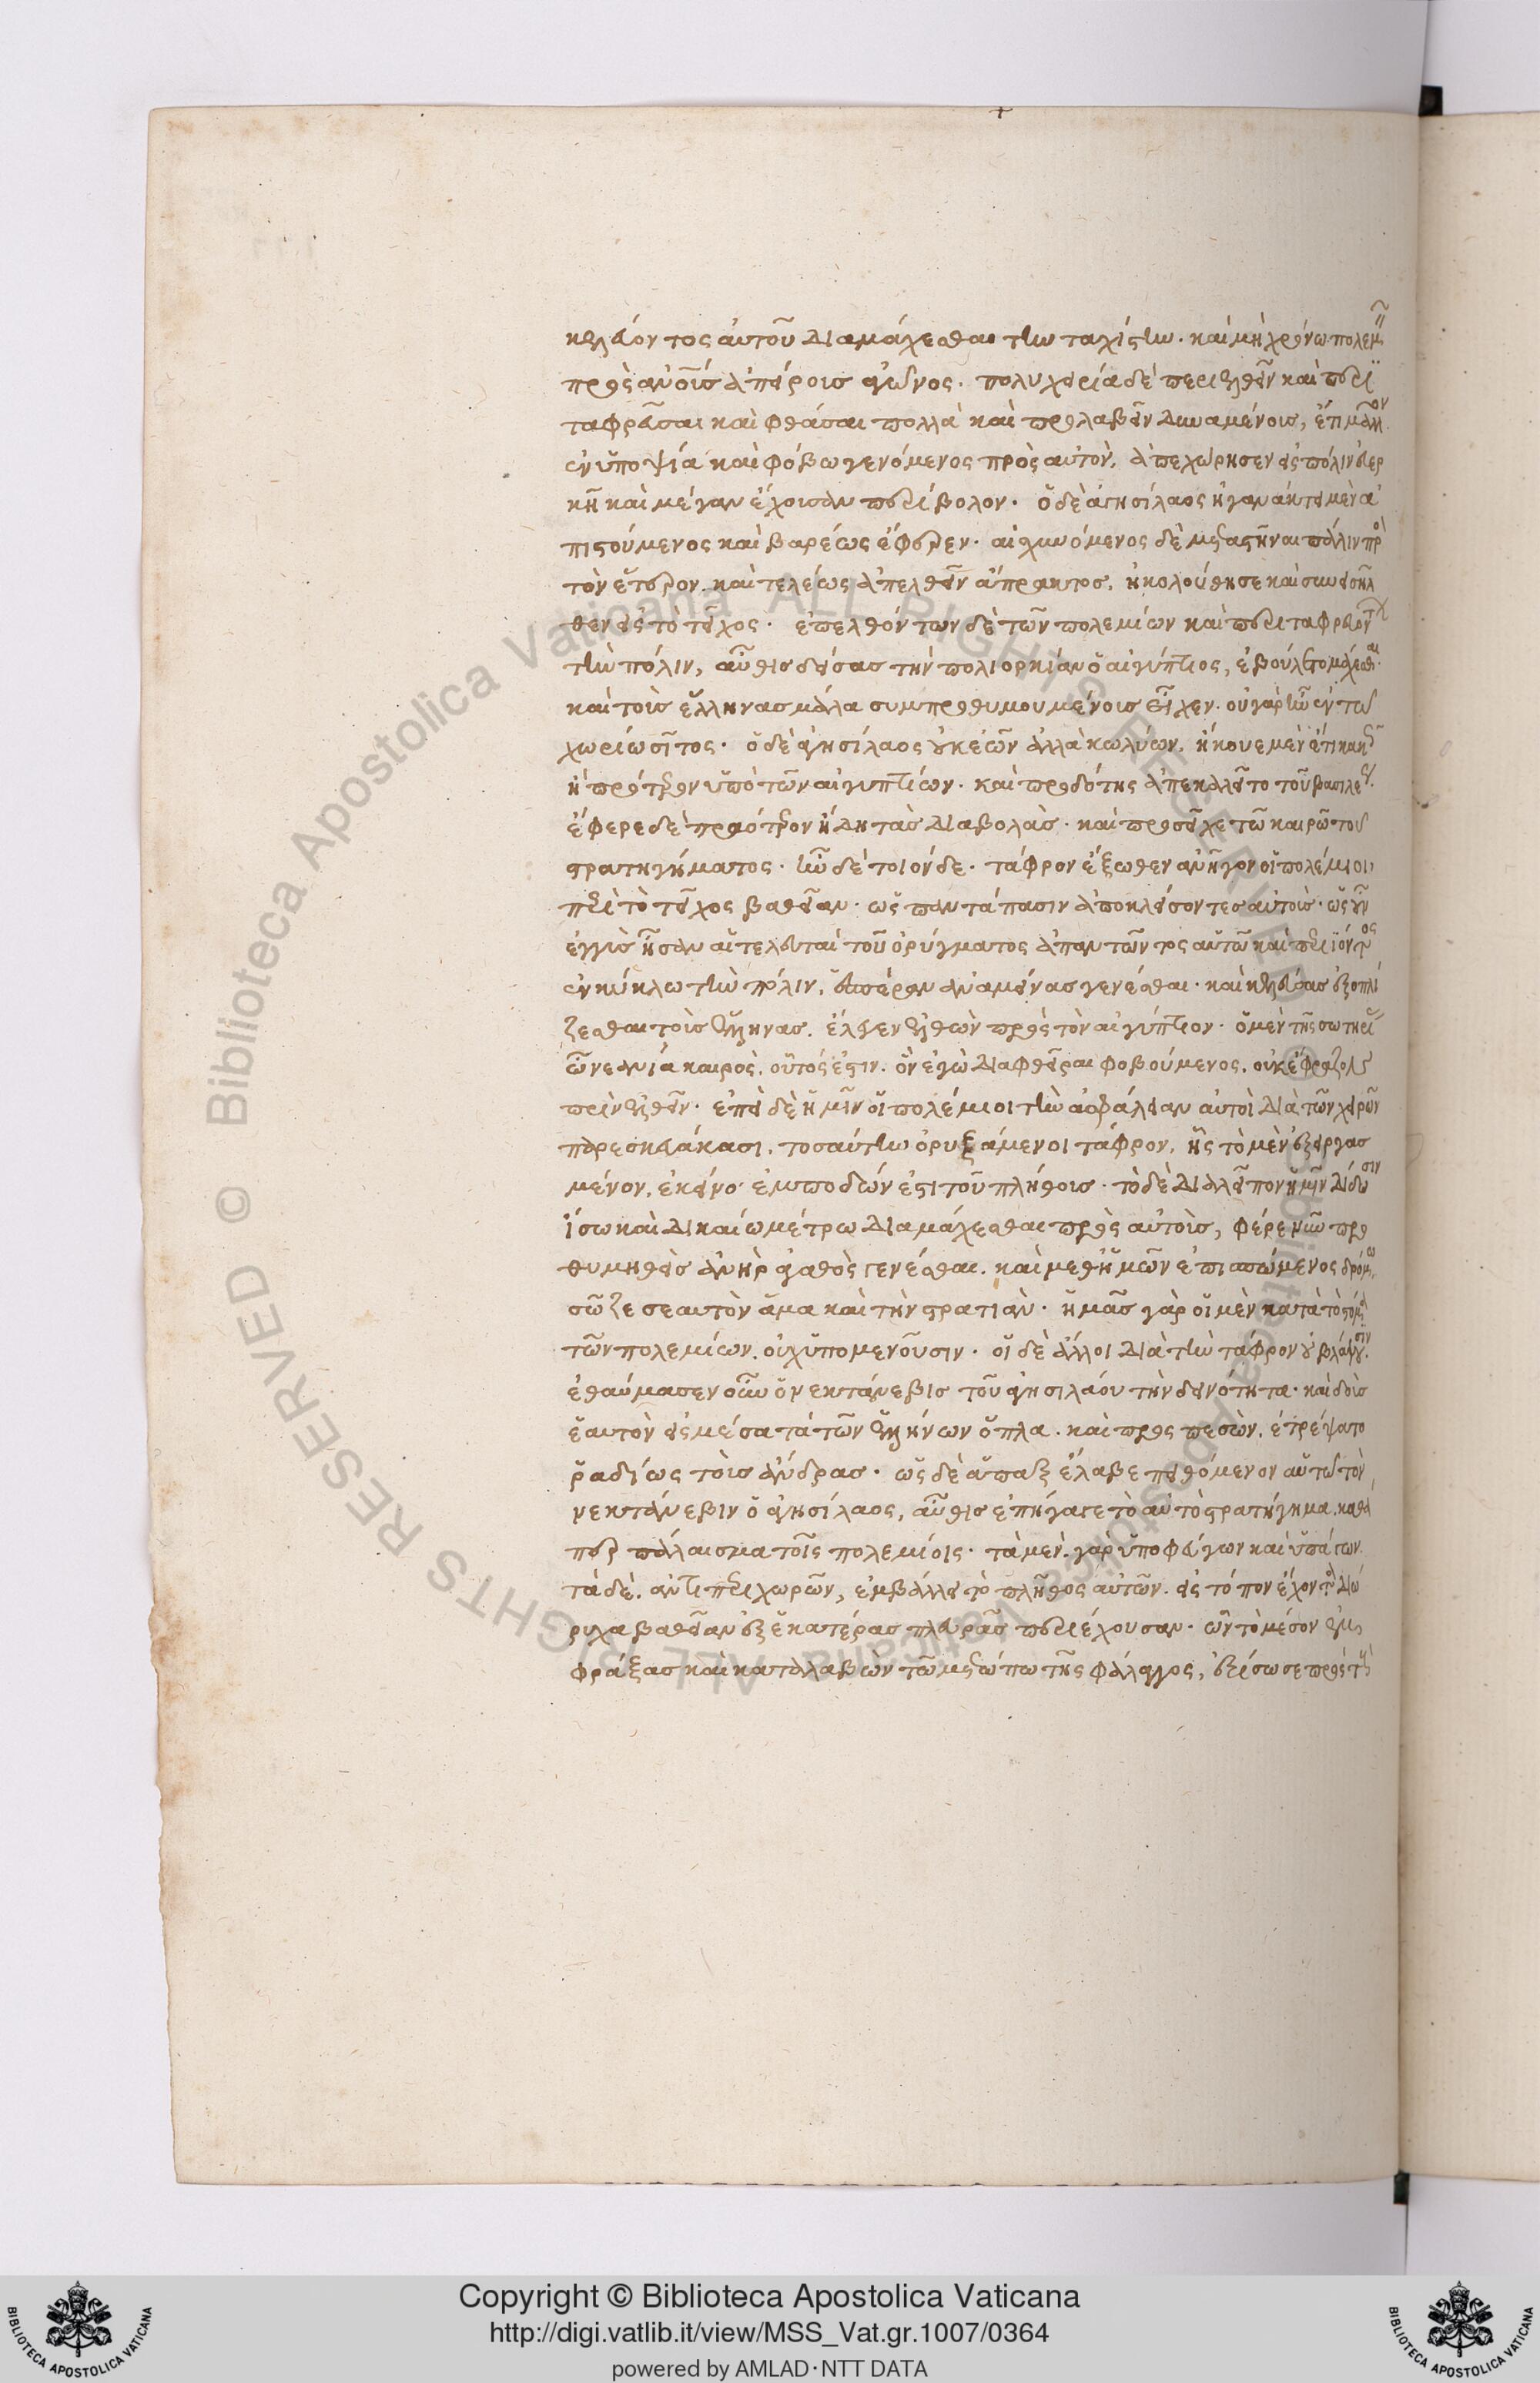 κελεύοντος αὐτοῦ διαμάχεσθαι τὴν ταχίστην. καὶ μὴ χρόνω πολεμεῖν
πρὸς ἀνθρώποις ἀπείροις ἀγῶνος. πολυχειρία δὲ περιελθεῖν καὶ περι
ταφρεῦσαι καὶ φθάσαι πολλὰ καὶ προλαβεῖν δυναμένοις, ἔτι μᾶλλον
ἐν ὑποψία καὶ φόβω γενόμενος πρὸς αὐτὸν, ἀπεχώρησεν εἰς πόλιν εὐερ
κῆ καὶ μέγαν ἔχουσαν περίβολον. ὁ δὲ ἀγησίλαος ἠγανάκτει μὲν ἀ
πιστούμενος καὶ βαρέως ἔφερεν. αἰσχυνόμενος δὲ μεταστῆναι πάλιν πρὸ
τὸν ἕτερον. καὶ τελέως ἀπελθεῖν ἄπρακτος, ἠκολούθησε καὶ συνεισῆλ
θεν εἰς τὸ τεῖχος. ἐπελθόντων δὲ τῶν πολεμίων καὶ περιταφρευόντων
τὴν πόλιν, αὖθις δείσας τὴν πολιορκίαν ὁ αἰγύπτιος, ἐβούλετο μάχεσθαι.
καὶ τοὺς ἕλληνας μάλα συμπροθυμουμένους εἶχεν. οὐ γὰρ ἦν ἐν τῶ
χωρίω σῖτος. ὁ δὲ ἀγησίλαος οὐκ ἐῶν ἀλλὰ κωλύων, ἤκουε μὲν ἔτι κακῶς
ἢ πρότερον ὑπὸ τῶν αἰγυπτίων. καὶ προδότης ἀπεκαλεῖτο τοῦ βασιλέως.
ἔφερε δὲ πραότερον ἤδη τὰς διαβολὰς. καὶ προσεῖχε τῶ καιρῶ τοῦ
στρατηγήματος. ἦν δὲ τοιόνδε. τάφρον ἔξωθεν ἀνῆγον οἱ πολέμιοι
περὶ τὸ τεῖχος βαθεῖαν. ὡς παντάπασιν ἀποκλείσοντες αὐτοὺς. ὡς οὖν
ἐγγὺς ἦσαν αἱ τελευταὶ τοῦ ὀρύγματος ἀπαντῶντος αὑτῶ καὶ περιϊόντος
ἐν κύκλω τὴν πόλιν, ἑσπέραν ἀναμείνας γενέσθαι. καὶ κελεύσας ἐξοπλί
ζεσθαι τοὺς ἕλληνας. ἔλεγεν ἐλθὼν πρὸς τὸν αἰγύπτιον. ὁ μὲν τῆς σωτηρίας
ὦ νεανία καιρὸς, οὗτός ἐστιν. ὃν ἐγὼ διαφθεῖραι φοβούμενος, οὐκ ἔφραζον
πρὶν ἐλθεῖν. ἐπεὶ δὲ ἡμῖν οἱ πολέμιοι τὴν ἀσφάλειαν αὐτοὶ διὰ τῶν χειρῶν
παρεσκευάκασι, τοσαύτην ὀρυξάμενοι τάφρον, ἧς τὸ μὲν ἐξειργασ
μένον, ἐκείνοις ἐμποδών ἐστι τοῦ πλήθους. τὸ δὲ διαλεῖπον ἡμῖν δίδωσιν
ἴσω καὶ δικαίω μέτρω διαμάχεσθαι πρὸς αὐτοὺς, φέρε νῦν προ
θυμηθεὶς ἀνὴρ ἀγαθὸς γενέσθαι. καὶ μεθ ἡμῶν ἐπισπώμενος δρόμω,
σῶζε σεαυτὸν ἅμα καὶ τὴν στρατιὰν. ἡμᾶς γὰρ οἱ μὲν κατὰ τὸ στόμα
τῶν πολεμίων, οὐχ ὑπομενοῦσιν. οἱ δὲ ἄλλοι διὰ τὴν τάφρον οὐ βλάψουσιν.
ἐθαύμασεν οὖν ὁ νεκτάνεβις τοῦ ἀγησιλάου τὴν δεινότητα. καὶ δοὺς
ἑαυτὸν εἰς μέσα τὰ τῶν ἑλλήνων ὅπλα. καὶ προσπεσὼν, ἐτρέψατο
ῥαδίως τοὺς ἄνδρας. ὡς δὲ ἅπαξ ἔλαβε πειθόμενον αὑτῶ τὸν
νεκτάνεβιν ὁ ἀγησίλαος, αὖθις ἐπήγαγε τὸ αὐτὸ στρατήγημα, καθά
περ πάλαισμα τοῖς πολεμίοις. τὰ μὲν γὰρ ὑποφεύγων καὶ ὑπάγων.
τὰ δὲ, ἀντιπεριχωρῶν, ἐμβάλλει τὸ πλῆθος αὐτῶν. εἰς τόπον ἔχοντα διώ
ρυχα βαθεῖαν ἐξ ἑκατέρας πλευρᾶς περιέχουσαν. ὧν τὸ μέσον ἐμ
φράξας καὶ καταλαβὼν τῶ μετώπω τῆς φάλαγγος, ἐξίσωσε πρὸς τοὺς